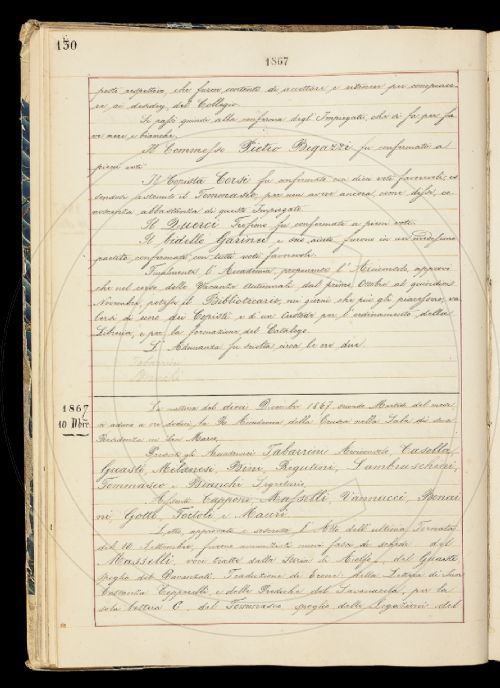 130
1867
poste rispettive, che furon contenti di accettare e ritenere per compiace-
re ai desiderj del Collegio.
Si passò quindi alla conferma degl'Impiegati, che si fa per fa
ve nere e bianche.
Il Commesso Pietro Bigazzi fu confermato a
pieni voti.
Il Copista Corsi fu confermato con dieci voti favorevoli, es
sendosi astenuto il Tommaseo, per non avere ancora, come disse, co
nosciuto abbastanza di questo Impiegato.
Il Querci fu confermato a pieni voti.
Il bidello Garinei e suo aiuto furono in un medesimo
partito confermati con tutti voti favorevoli.
Finalmente l'Accademia, proponente l'Arciconsolo, approvò
che nel corso delle Vacanze autunnali dal primo Ottobre al quindici
Novembre, potesse il Bibliotecario, nei giorni che più gli piacessero, va
lersi di uno dei Copisti e di un Custode per l'ordinamento della
Libreria, e per la formazione del Catalogo.
L'Adunanza fu sciolta circa le ore due.
1867
10 Dbre.
La mattina del dieci Dicembre 1867, giorno Martedì, del mese
a adunò a ore dodici la R. Accademia della Crusca nella Sala di sua
Residenza in San Marco,
Presenti gli Accademici Tabarrini Arciconsolo, Casella
Guasti, Milanesi, Bini, Rigutini, Lambruschini,
Tommaseo e Bianchi Segretario,
Assenti Capponi, Masselli, Vannucci, Bonai
ni, Gotti, Tortoli e Mauri.
Letto, approvato e sottoscritto l'Atto dell'ultima Tornata
del 10 Settembre, furono annunziati nuovi fasci di schede del
Masselli, voci tratte dalla Storia di Aiolfo, del Guasti
spoglio del Davanzati, Traduzione di Erone, della Lettera di Suor
Costanza Ciapperelli e delle Prediche del Savonarola, per la
sola lettera C, del Tommaseo spoglio delle Legazioni del